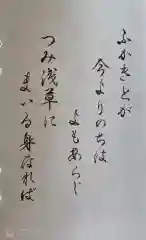 ふかきとが
今よりのちは
よもあらじ
つみ浅草に
まいる身なれば